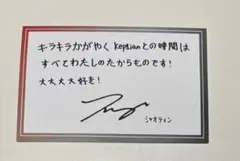 キラキラかがやく Kep1ianとの時間は
すべてわたしのたからものです!
大大大大好き!
シャオティン